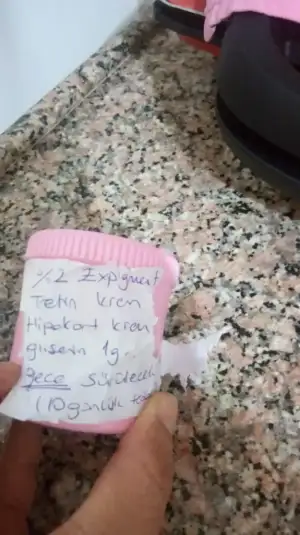 %2 Expigment
Tetin krem
Hipokort krem
gliserin 1g
gece sürülecek
(10 günlük